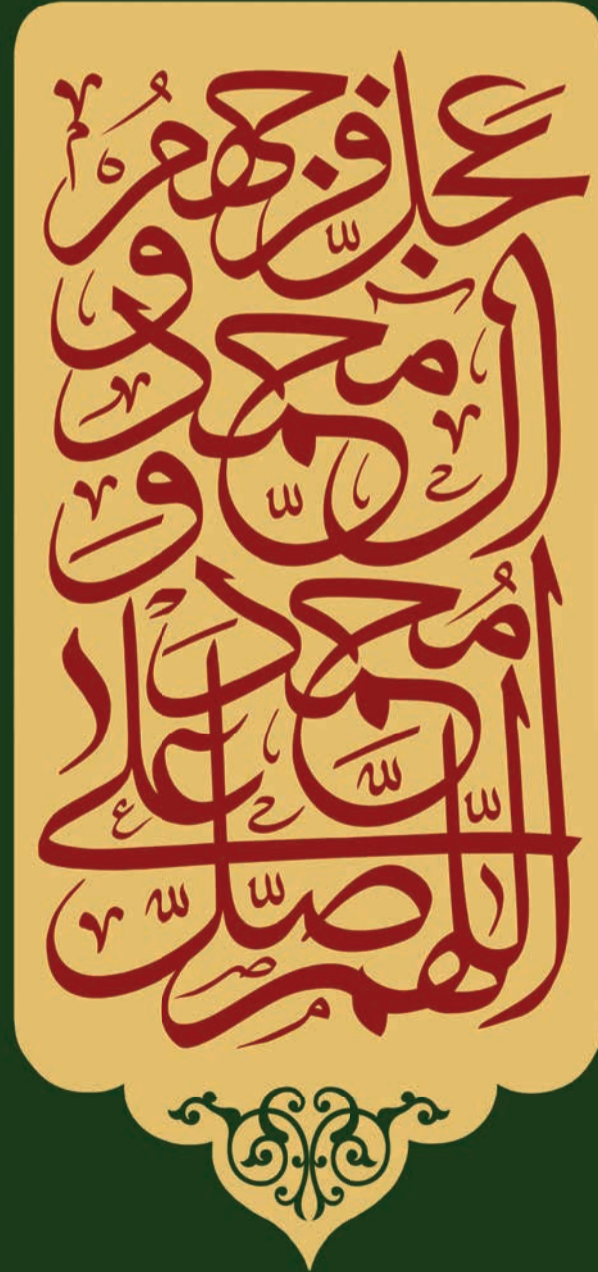 اللهم صل علی
محمد و
آل محمد و
عجل فرجهم